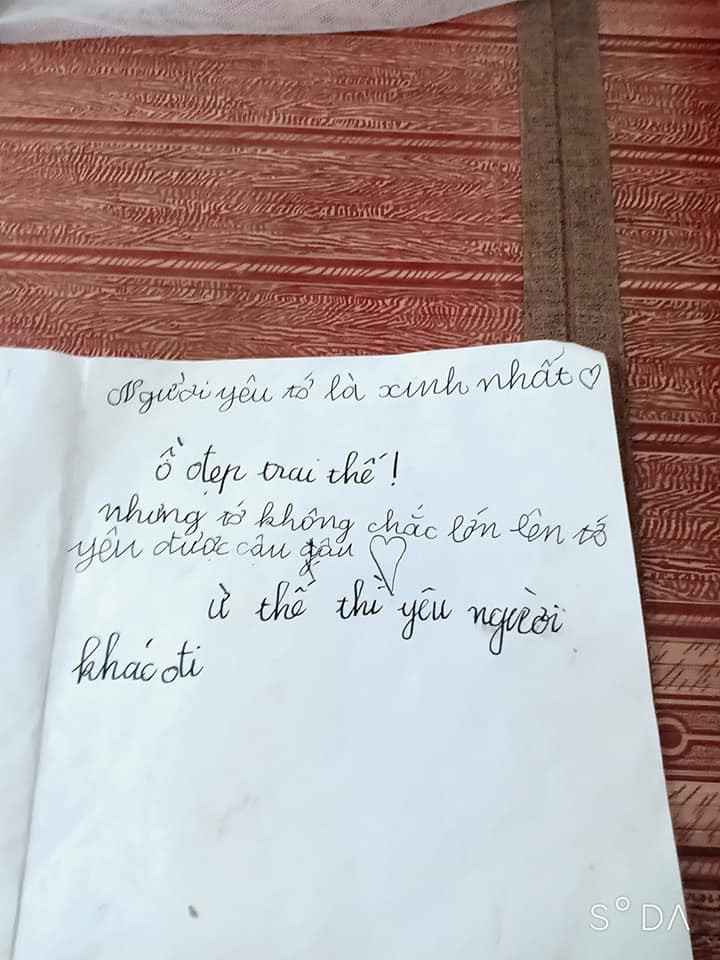 Người yêu tớ là xinh nhất ♡
ồ đẹp trai thế!
nhưng tớ không chắc lớn lên tớ
yêu được cậu đâu ♡
ừ thế thì yêu người
khác đi
SODA